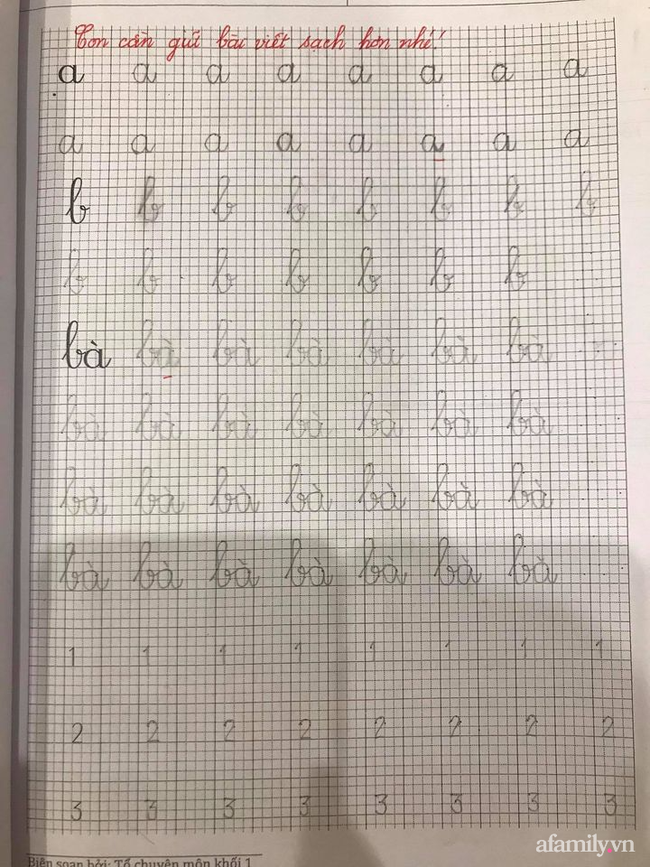 Con cần giữ bài viết sạch hơn nhé!
a a a a a a a a
a a a a a a a a
b b b b b b b b
b b b b b b b
bà bà bà bà bà bà bà
bà bà bà bà bà bà bà
bà bà bà bà bà bà bà
bà bà bà bà bà bà bà
1 1 1 1 1 1 1 1
2 2 2 2 2 2 2 2
3 3 3 3 3 3 3 3
Biên soạn bởi: Tổ chuyên môn khối 1
afamily.vn